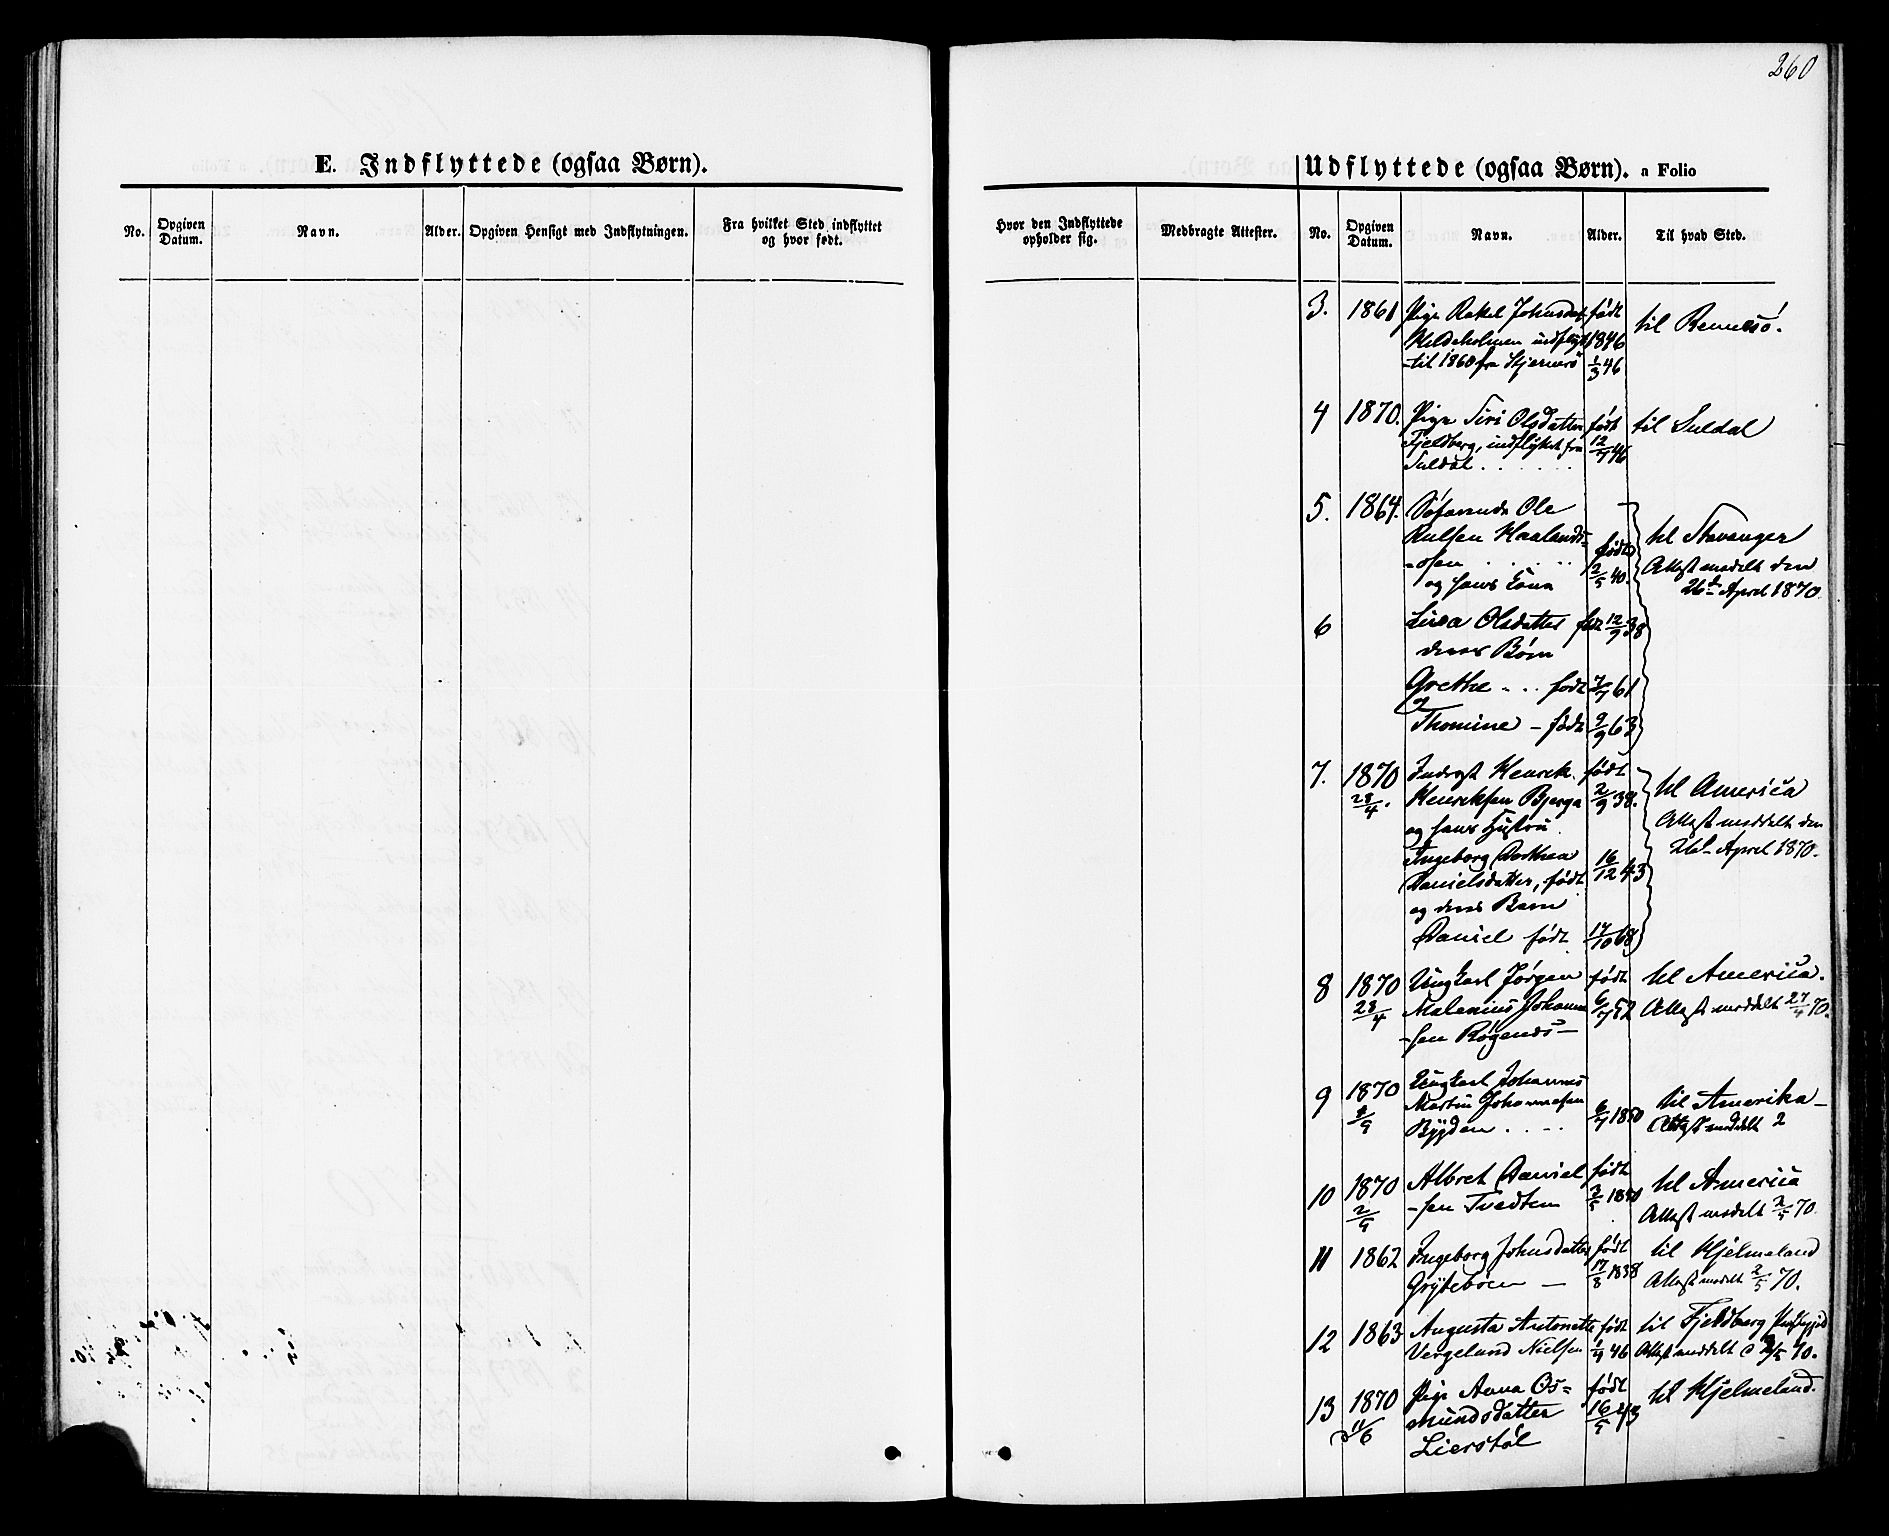 260
E. Indflyttede (ogsaa Børn).
No.
Opgiven
Datum.
Navn.
Alder.
Opgiven Hensigt med Indflytningen.
Fra hvilket Sted indflyttet
og hvor født.
Hvor den Indflyttede
opholder sig.
Medbragte Attester.
Udflyttede (ogsaa Børn). a Folio
No.
Opgiven
Datum.
Navn.
Alder.
Til hvad Sted.
3. 1861 Pige Rakel Johnsdat født til Rennesø.
1846
-til 1860 fra Stjernerø 1/3 46
4 1870. Pige Siri Olsdatter født til Suldal
Fjeldberg, indflyttet fra 12/7 46
Suldal . . . . . .
5. 1864. Søfarende Ole
Haalands= født til Stavanger
-osen . . . . . 2/5 40. Attest meddelt den
og hans Kona 26de April 1870.
6 Lisa Olsdatter født 12/9 38
deres Børn
Grethe . . . født 7/7 61
og
Thomine - født 9/9 63
7. 1870 Henrik født til America
28/4. Henriksen Bjerga 2/9 38. Attest meddelt den
og hans Hustru. 26de April 1870.
Ingeborg Dorthea 16/12 43
Danielsdatter, født
og deres Barn
Daniel født 14/10 68
8 1870 Ungkarl Jørgen født til America.
28/4 Malenius Johanne 6/7 52 Attest meddelt 27/4 70.
-sen
9 1870 Ungkarl Johannes til Amerika-
Martin Johannesen 6/7 1850 Attest meddelt 2
Bygden . . . .
10 1870 Albret Daniel født til America
-sen Tvedten Attest meddelt 2/5 70.
11 1862 Ingeborg Johnsdatter født til Hjelmeland
Grytebøen - 17/8 1838 Attest meddelt 2/5 70.
12 1863 Augusta Antonette født til Fjeldberg
Vergeland Nielsen 1/4 46 Attest meddelt 70.
13 1870 Pige Anna Os= født til Hjelmeland.
11/6 mundsdatter 43
Lierstøl